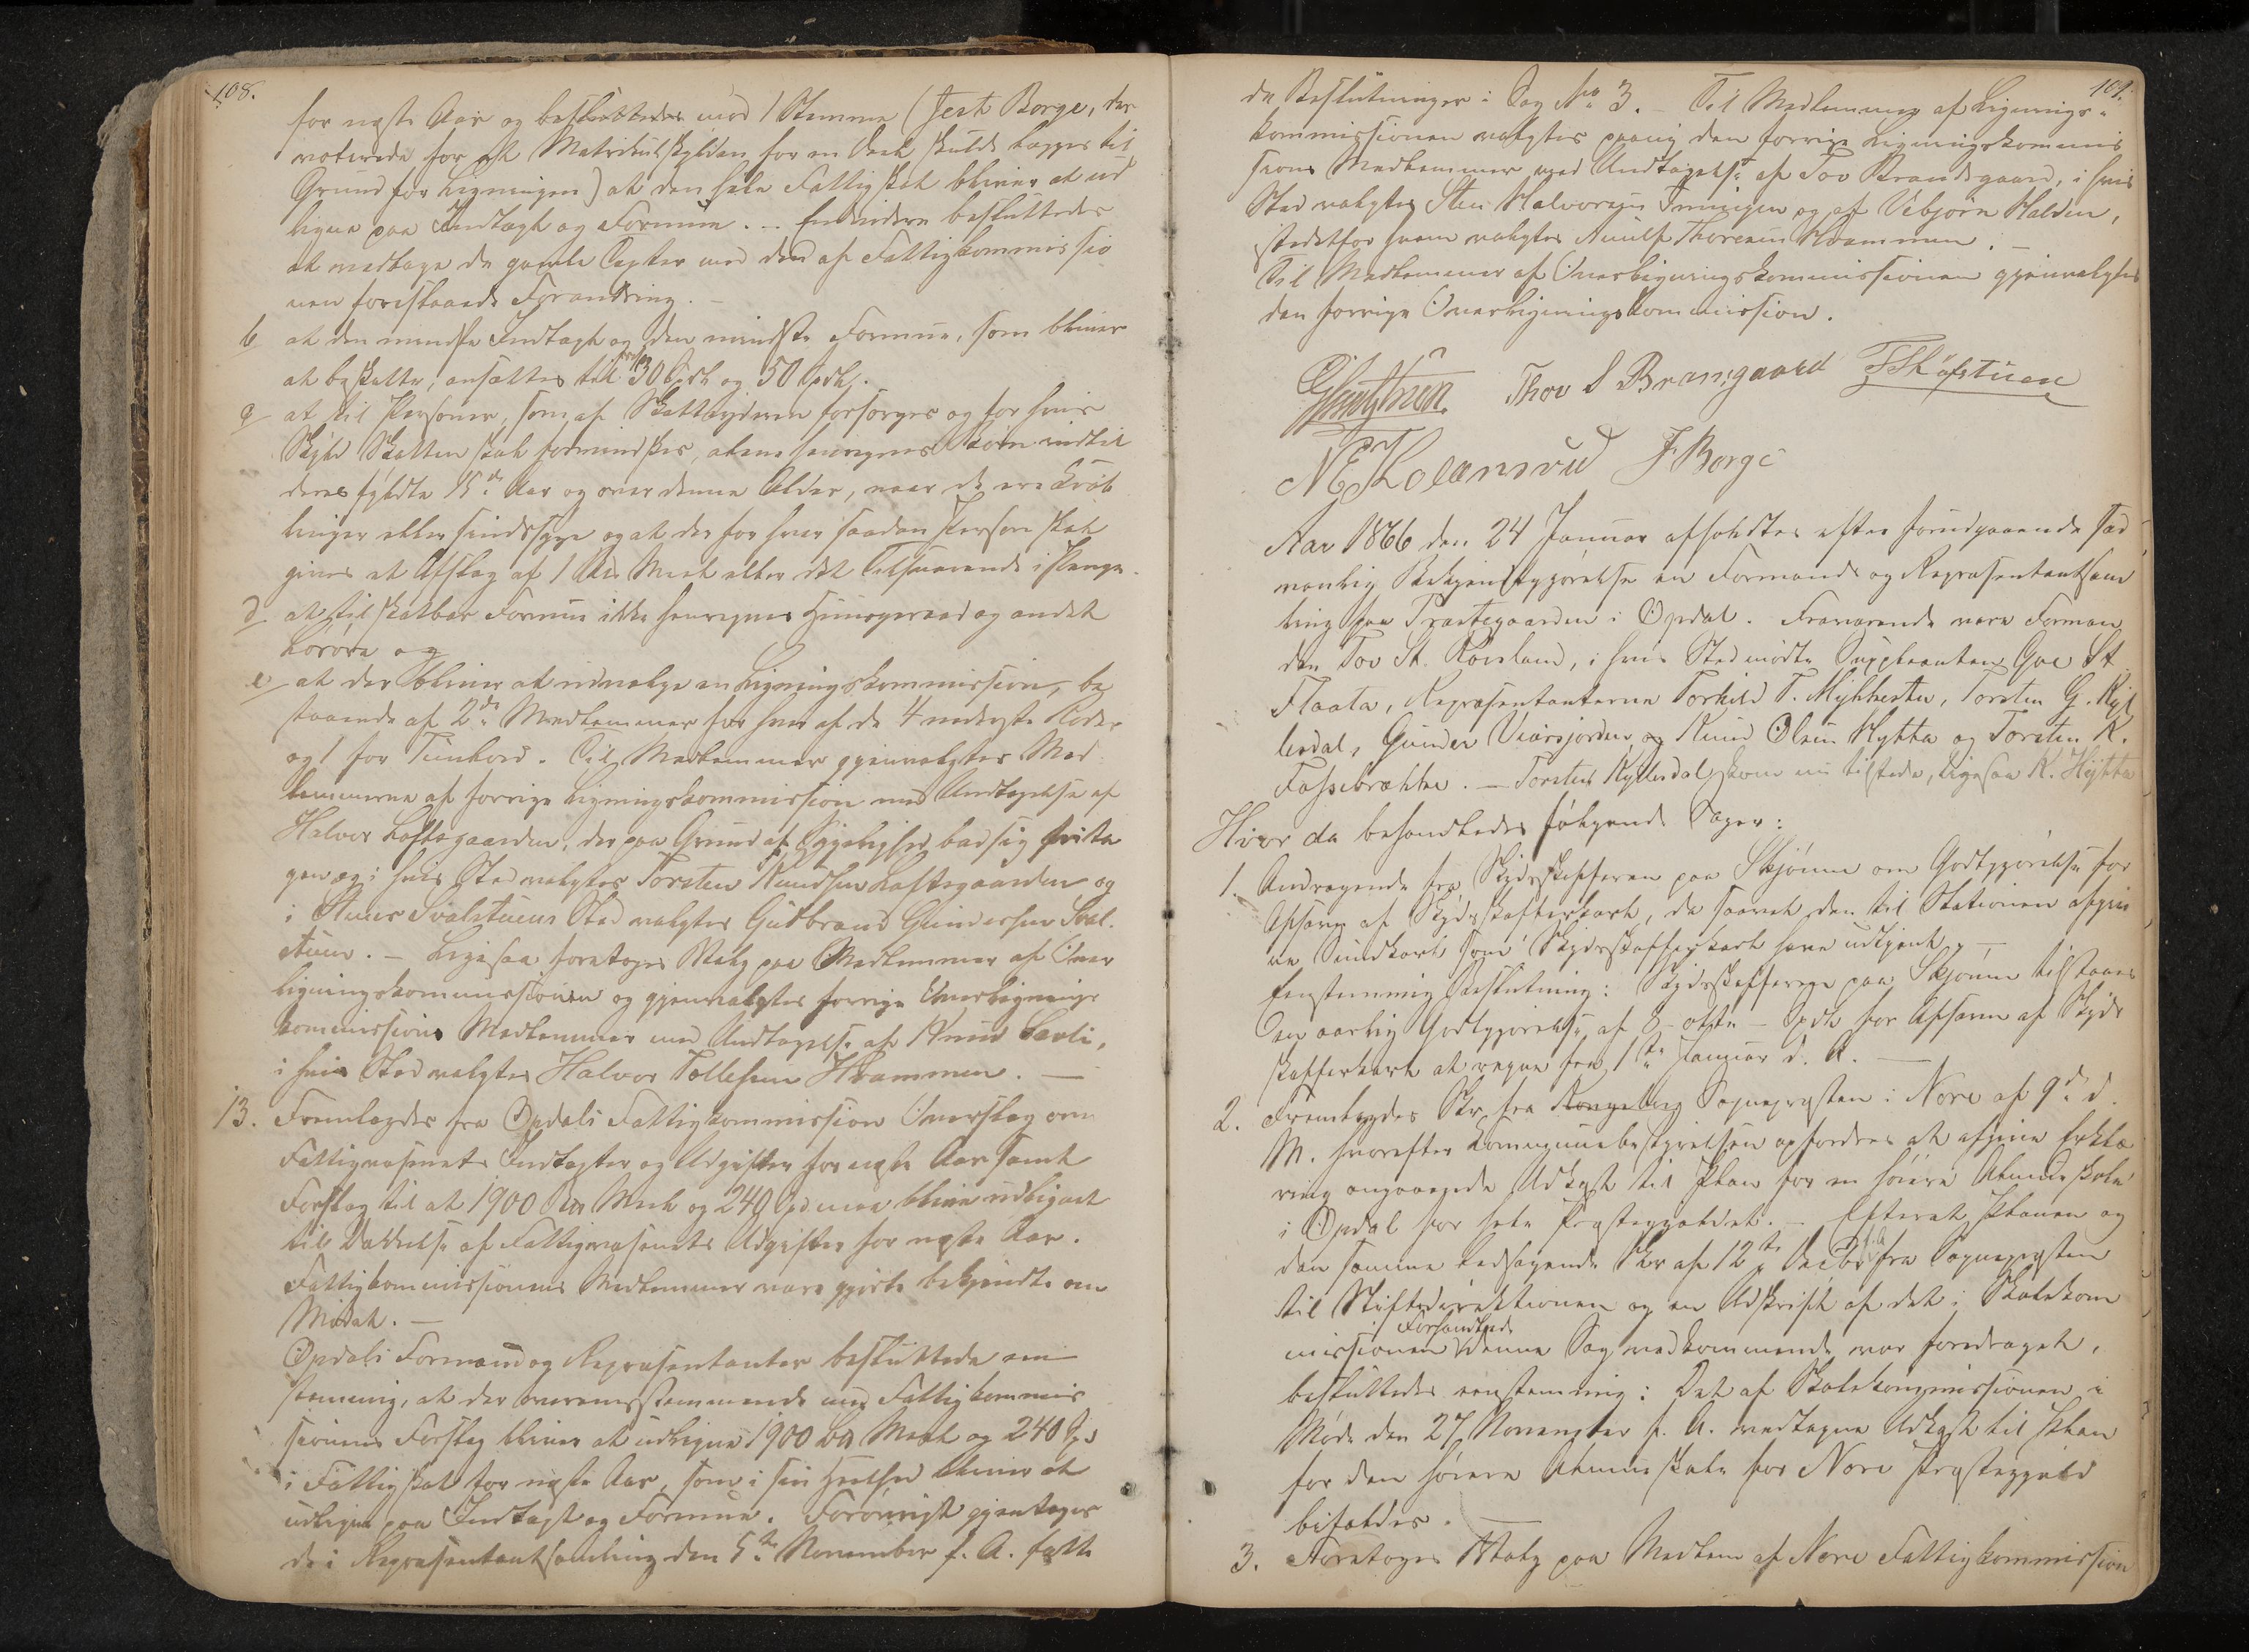 108.
for næste Aar og besluttedes mod 1 Stemme (Jesti Borge, der
voterede for at Matrikulskylden for en Deel skulde lægges til
Grund for Ligningen) at den hele Fattigskat bliver at ud
ligne paa Indtægt og Formue. – Endvidere besluttedes
at medtage de gamle Taxter med den af Fattigkommissio
nen foreslaaede Forandring. –
b at den mindste Indtægt og den mindste Formue, som bliver
at beskatte, ansættes til 30 Spdl og 50 Spdl.
c at til Personer, som af Skatteyderen forsørges og for hvis
Skyld Skatten skal formindskes, alene henregnes Børn indtil
deres fyldte 15de Aar og over denne Alder, naar de ere Krøb
linger eller sindssyge og at der for hver saadan Person skal
gives et Afslag af 1 Mark eller det Tilsvarende i Penge.
d at til skatbar Formue ikke henregnes Huusgeraad og andet
Løsøre og
e at der bliver at udvælge en Ligningskommission, be
staaende af 2de Medlemmer for hver af de 4 nederste Roder
og 1 for Tunhovd. Til Medlemmer gjenvalgtes Med
lemmerne af forrige Ligningskommission med Undtagelse af
Halvor Loftsgaarden, der paa Grund af Sygelighed bad sig frita
gen og i hvis Sted valgtes Torsten Knudsen Loftsgaarden og
i Svalstuens Sted valgtes Gulbrand Gundersen Sval
stuen. – Ligesaa foretoges Valg paa Medlemmer af Over
ligningskommissionen og gjenvalgtes forrige Overlignings
kommissions Medlemmer med Undtagelse af Knud
i hvis Sted valgtes Halvor Tollefsen Hvammen. –
13. Fremlagdes fra Opdals Fattigkommission Overslag over
Fattigvæsenets Indtægter og Udgifter for næste Aar samt
Forslag til at 1900 Mark og 240 Spd maa blive udlignet
til Dækkelse af Fattigvæsenets Udgifter for næste Aar.
Fattigkommissionens Medlemmer vare gjorte bekjendte om
Mødet. –
Opdals Formænd og Repræsentanter besluttede een
stemmig, at der overensstemmende med Fattigkommis
sionens Forslag bliver at udligne 1900 Mark og 240 Spd
i Fattigskat for næste Aar, som i sin Heelhed bliver at
udligne paa Indtægt og Formue. Forøvrigt gjentages
de i Repræsentantsamling den 5te November f. A. fatte
109.
de Beslutninger i Sag No 3. – Til Medlemmer af Lignings-
kommissionen valgtes paany den forrige Ligningskommis
sions Medlemmer med Undtagelse af Tov Brandsgaard, i hvis
Sted valgtes Sten Halvorsen og af Vebjørn Halden,
istedetfor hvem valgtes Thoresen Hvammen. –
Til Medlemmer af Overligningskommissionen gjenvalgtes
den forrige Overligningskommission.
Thov S Bransgaard
N E Kolansrud J. Borge
Aar 1866 den 24 Januar afholdtes efter forudgaaende sæd
vanlig Bekjendtgjørelse en Formands og Repræsentantsam
ling paa Præstegaarden i Opdal. Fraværende vare Forman
den Tov St. Kovsland, i hvis Sted mødte Suppleanten Goe St.
Flaata, Repræsentanterne Torkild T. Mykkestu, Torsten G. Kyl
lesdal, Gunder Viersjorden og Knud Olsen Hytta og Torsten K.
Fossebrække. – Torsten Kyllesdal kom nu tilstede, ligesaa K. Hytta
Hvor da behandledes følgende Sager:
1. Andragende fra Skydsskafferen paa Skjønne om Godtgjørelse for
Afsavn af Skydsskafferkorn, da saavel den til Stationen afgiv
ne som Skydsskafferkorn have udtjent. –
Eenstemmig Beslutning: Skydsskafferen paa Skjønne tilstaaes
en aarlig Godtgjørelse af 8 – otte – Spdl for Afsavn af Skyds
skafferkorn at regne fra 1ste Januar d. A. –
2. Fremlagdes Skr. fra Sognepræsten i Nore af 9de d.
M. hvorefter Kommunebestyrelsen opfordres at afgive Erklæ
ring angaaende Udkast til Plan for en høiere Almueskole
i Opdal for hele Præstegjeldet. – Efterat Planen og
den samme ledsagende Skr af 12te Decbr fra Sognepræsten
til Stiftsdirektionen og en Udskrift af det i Skolekom
missionen Forhandlede denne Sag vedkommende var foredraget,
besluttedes eenstemmig: Det af Skolekommissionen i
Møde den 27 November f. A. vedtagne Udkast til Plan
for den høiere Almueskole for Nore Præstegjeld
bifaldes.
3. Foretoges Valg paa Medlem af Nore Fattigkommission